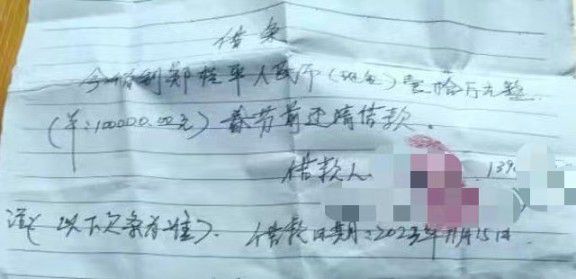 借条
今借到郑桂平人民币(现金)壹拾万元整
(￥:100000.00元)春节前还清借款.
借款人 139
注(以下欠条为准). 借款日期:2023年11月15日